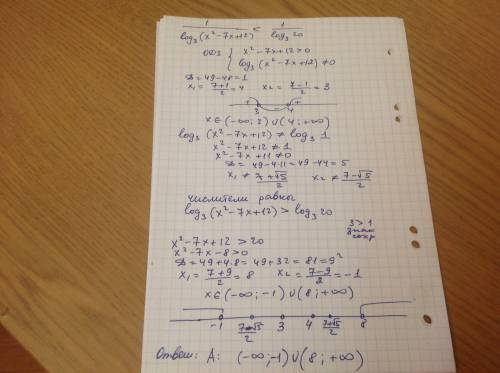 1/log₃(x²-7x+12) < 1/log₃20
ОДЗ { x²-7x+12>0
log₃(x²-7x+12)≠0
D=49-48=1
x₁=(7+1)/2=4 x₂=(7-1)/2=3
+ 3 - 4 +
x∈(-∞;3)∪(4;+∞)
log₃(x²-7x+12)≠log₃1
x²-7x+12≠1
x²-7x+11≠0
D=49-4·11=49-44=5
x₁≠(7+√5)/2 x₂≠(7-√5)/2
числители равны
log₃(x²-7x+12)>log₃20
3>1
знак
сохр
x²-7x+12>20
x²-7x-8>0
D=49+4·8=49+32=81=9²
x₁=(7+9)/2=8 x₂=(7-9)/2=-1
x∈(-∞;-1)∪(8;+∞)
-1 (7-√5)/2 3 4 (7+√5)/2 8
Ответ: А: (-∞;-1)∪(8;+∞)